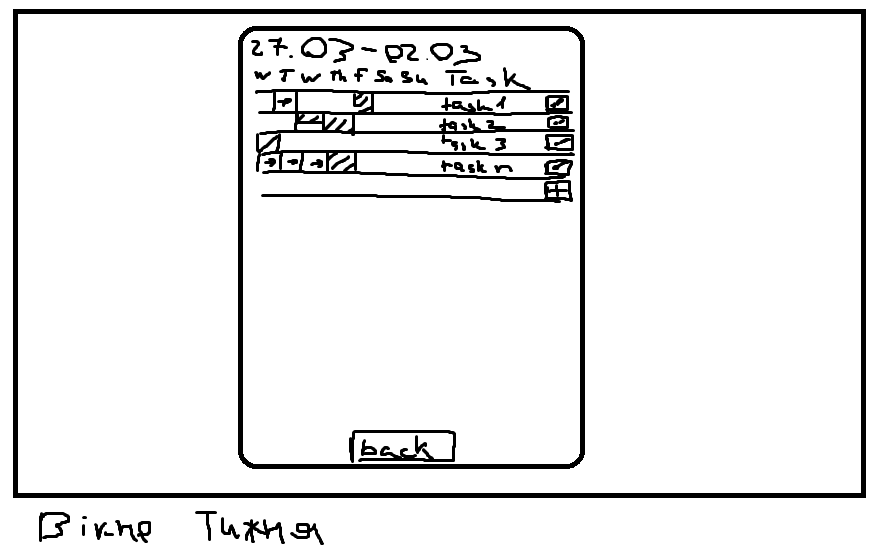 27.03-02.03
W T W Th F Sa Su Task
task 1
task 2
task 3
task n
back
Вікно Тижня